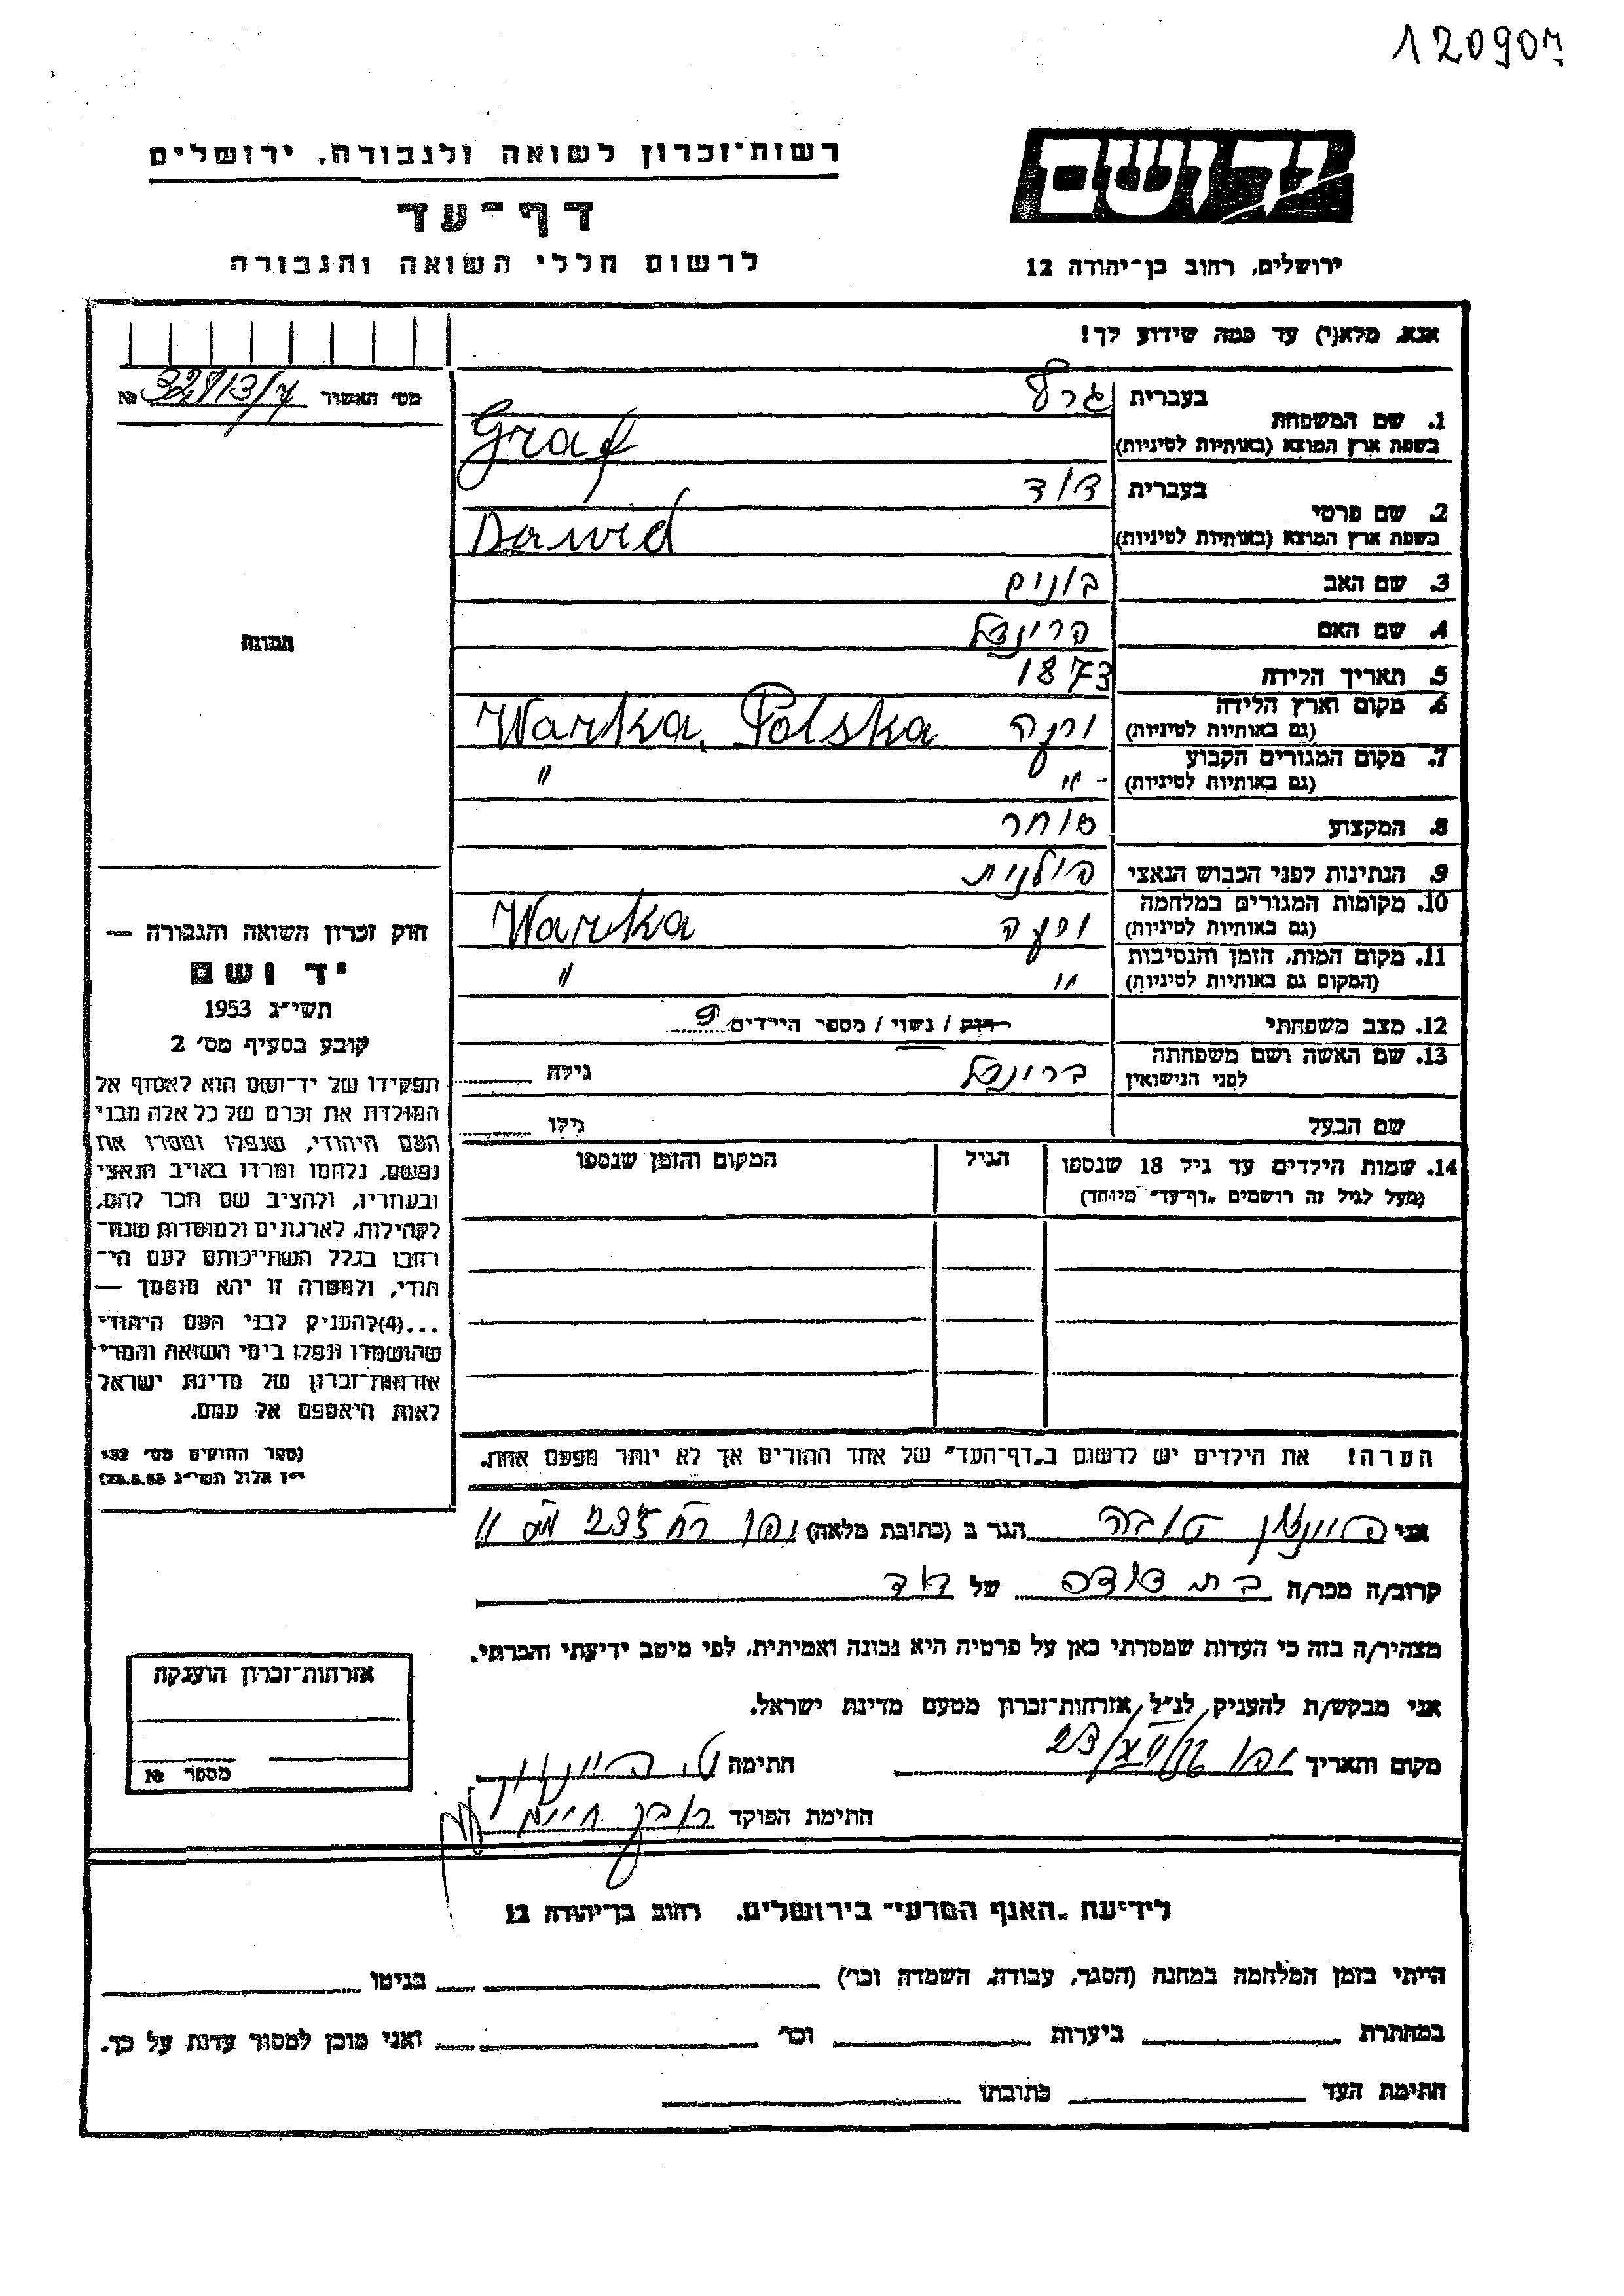 120907
רשות־זכרון לשואה ולגבורה, ירושלים
דף־עד
לרשום חללי השואה והגבורה
יד ושם
ירושלים, רחוב בן־יהודה 12
אנא, מלא(י) עד כמה שידוע לך!
מס׳ האשור № 32813/7
1. שם המשפחה
בעברית גרף
בשפת ארץ המוצא (באותיות לטיניות) Graf
2. שם פרטי
בעברית דוד
בשפת ארץ המוצא (באותיות לטיניות) Dawid
3. שם האב בונים
4. שם האם
5. תאריך הלידה 1873
6. מקום וארץ הלידה (גם באותיות לטיניות) ורקה Warka, Polska
7. מקום המגורים הקבוע (גם באותיות לטיניות) - " "
8. המקצוע סוחר
9. הנתינות לפני הכבוש הנאצי פולנית
10. מקומות המגורים במלחמה (גם באותיות לטיניות) ורקה Warka
11. מקום המות, הזמן והנסיבות (המקום גם באותיות לטיניות) " "
12. מצב משפחתי רווק / נשוי / מספר הילדים 9
13. שם האשה ושם משפחתה לפני הנישואין גילה
שם הבעל גילו
14. שמות הילדים עד גיל 18 שנספו
(מעל לגיל זה רושמים „דף־עד" מיוחד)
הגיל
המקום והזמן שנספו
תמונה
חוק זכרון השואה והגבורה —
יד ושם
תשי״ג 1953
קובע בסעיף מס׳ 2
תפקידו של יד־ושם הוא לאסוף אל
המולדת את זכרם של כל אלה מבני
העם היהודי, שנפלו ומסרו את
נפשם, נלחמו ומרדו באויב הנאצי
ובעוזריו, ולהציב שם וזכר להם,
לקהילות, לארגונים ולמוסדות שנח־
רבו בגלל השתייכותם לעם הי־
הודי, ולמטרה זו יהא מוסמך —
...(4)להעניק לבני העם היהודי
שהושמדו ונפלו בימי השואה והמרי
אזרחות־זכרון של מדינת ישראל
לאות היאספם אל עמם.
(ספר החוקים מס׳ 132
י״ז אלול תשי״ג 28.8.53)
הערה! את הילדים יש לרשום ב„דף־העד" של אחד ההורים אך לא יותר מפעם אחת.
אני טובה הגר ב (כתובת מלאה) יפו רח 239
קרוב/ה מכר/ה בת דודה של דוד
מצהיר/ה בזה כי העדות שמסרתי כאן על פרטיה היא נכונה ואמיתית, לפי מיטב ידיעתי והכרתי.
אני מבקש/ת להעניק לנ״ל אזרחות־זכרון מטעם מדינת ישראל.
מקום ותאריך יפו חתימה
חתימת הפוקד
אזרחות־זכרון הוענקה
מספר №
לידיעת „האגף המדעי" בירושלים. רחוב בן־יהודה 12
הייתי בזמן המלחמה במחנה (הסגר, עבודה, השמדה וכו׳) בגיטו
במחתרת ביערות וכו׳ ואני מוכן למסור עדות על כך.
חתימת העד כתובתו